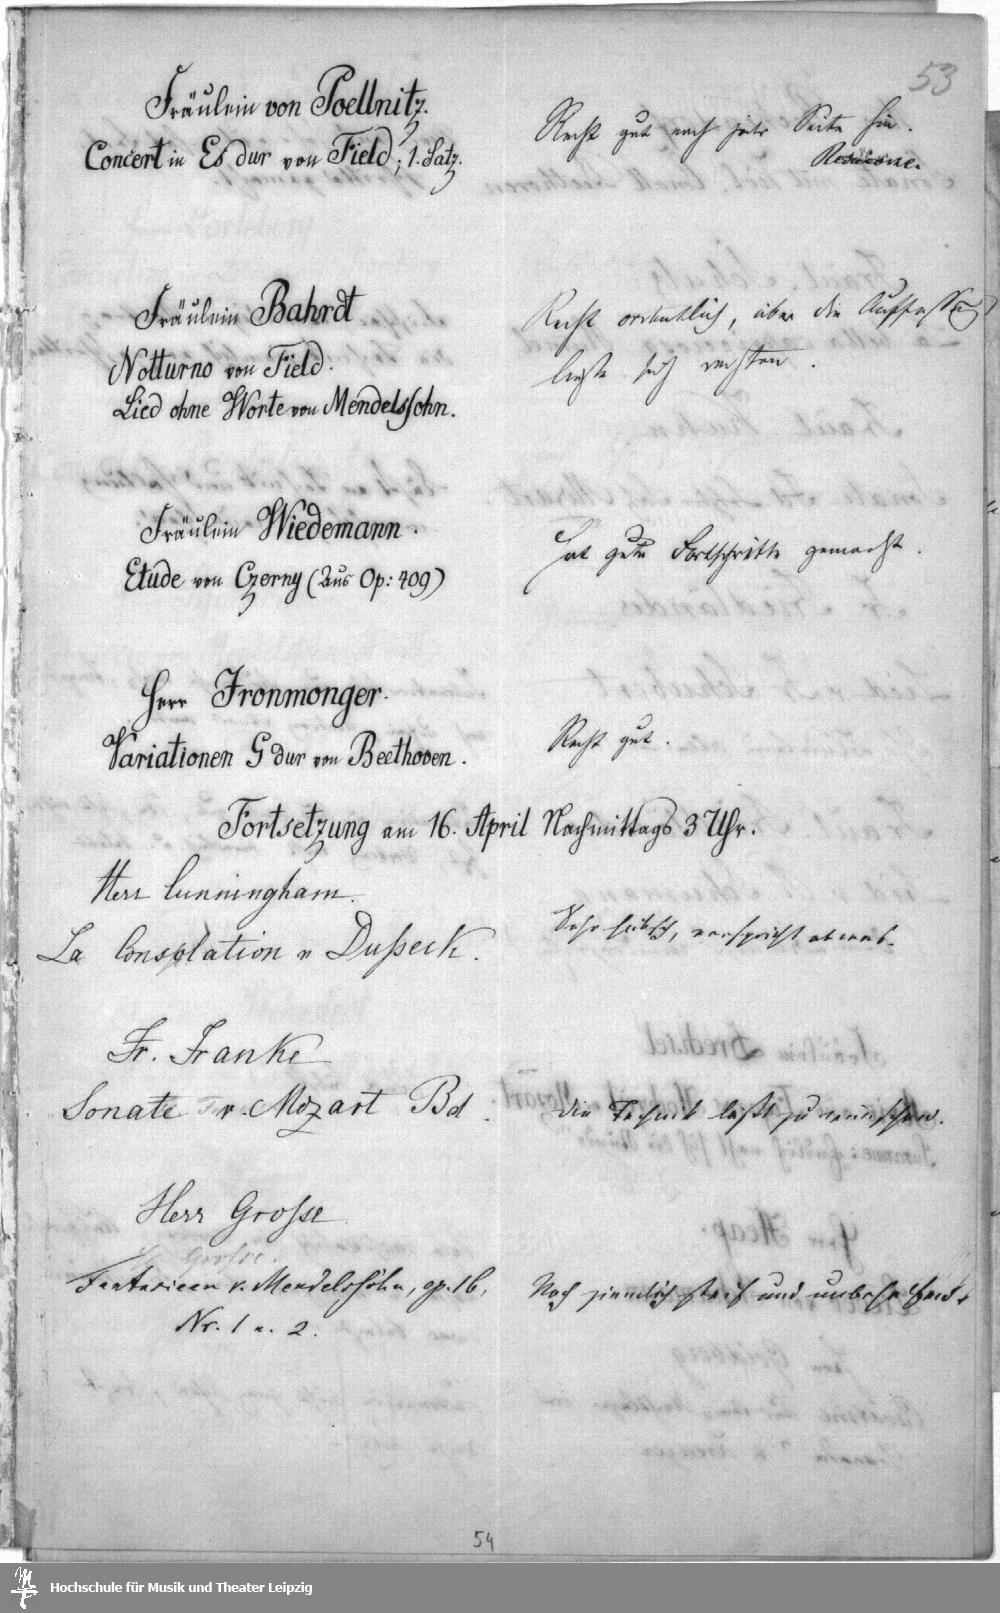 53
Fräulein von Poellnitz.
Concert in Es dur von Field; 1. Satz.
Recht gut nach jeder Seite hin.
Fräulein Bahrdt
Notturno von Field.
Lied ohne Worte von Mendelssohn.
Recht ordentlich, aber die Auffassung
ließe sich rechten.
Fräulein Wiedemann.
Etude von Czerny (Aus Op: 409)
Hat gute Fortschritte gemacht.
Herr Ironmonger.
Variationen G dur von Beethoven.
Recht gut.
Fortsetzung am 16. April Nachmittags 3 Uhr.
Herr Cunningham.
La Consolation v Dußeck.
Sehr hübsch, verspricht etwas.
Fr. Franke
Sonate v. Mozart Bd.
Die Technik läßt zu wünschen.
Herr Grosse
Fantasieen v. Mendelssohn, op. 16,
Nr. 1 u. 2.
Noch ziemlich steif und unbeholfen.
54
Hochschule für Musik und Theater Leipzig